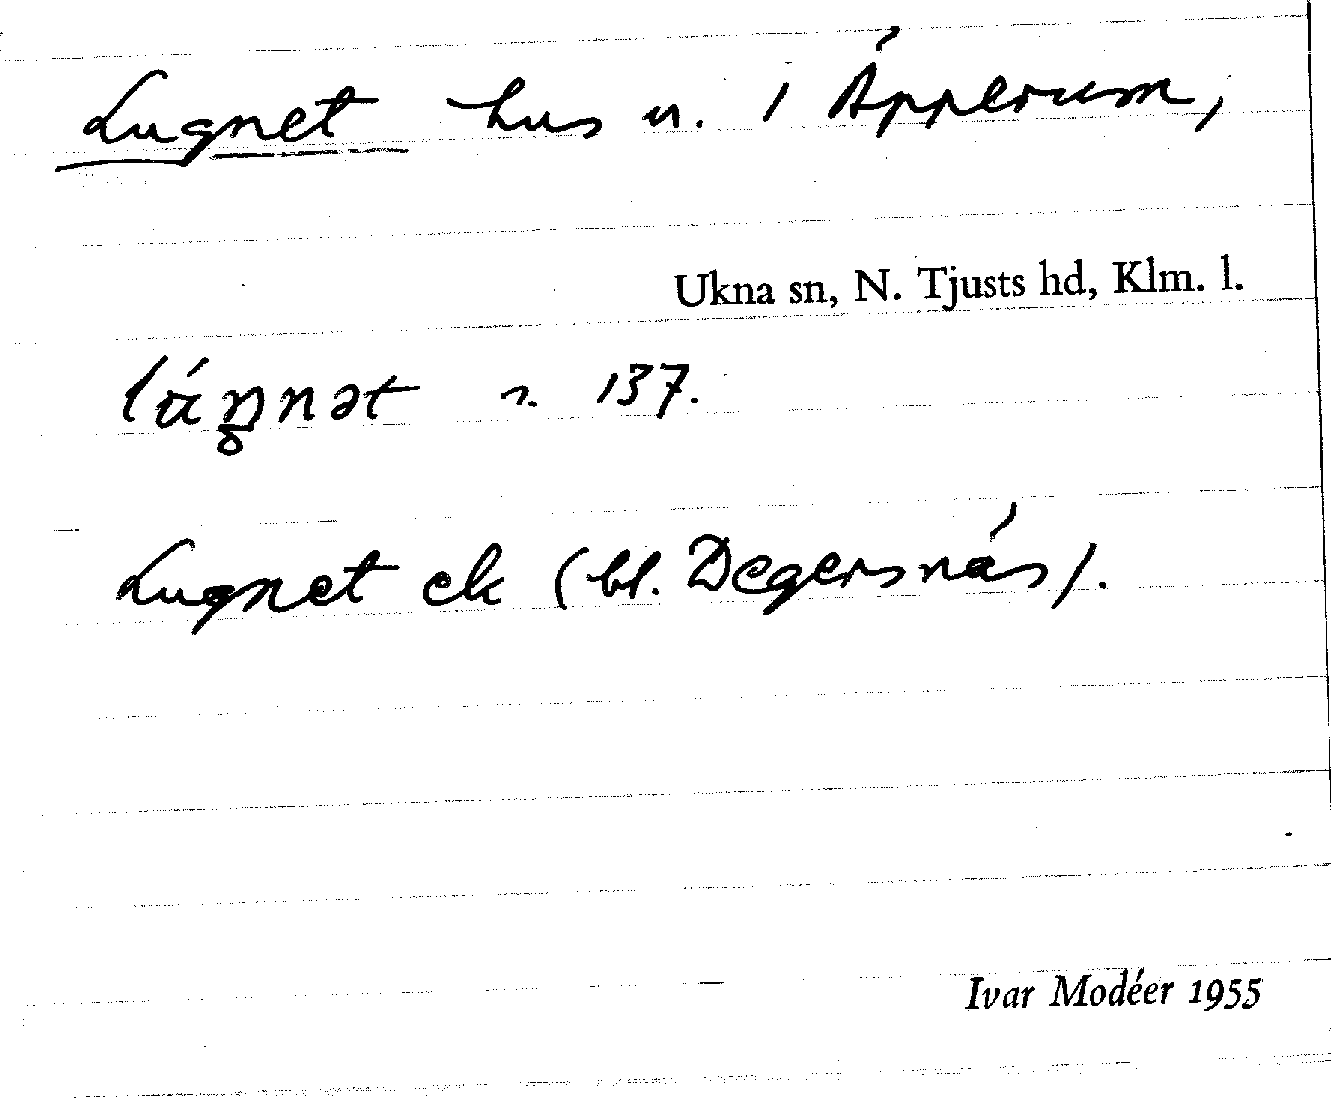 Lugnet hus n. i Äpperum,
Ukna sn, N. Tjusts hd, Klm. l.
n. 137.
Lugnet ek (bl. Degersnäs).
Ivar Modéer 1955